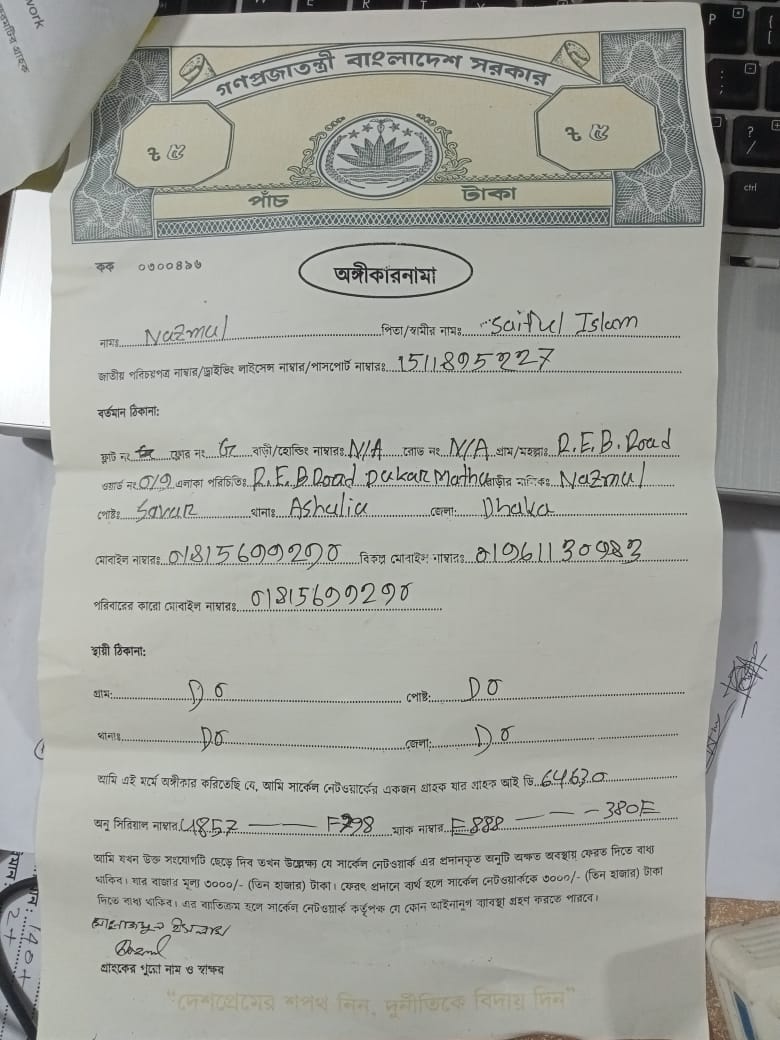 work
গণপ্রজাতন্ত্রী বাংলাদেশ সরকার
৳ ৫
৳ ৫
পাঁচ টাকা
কক ০৩০০৪৯৬
অঙ্গীকারনামা
নামঃ Nazmul পিতা/স্বামীর নামঃ Saiful Islam
জাতীয় পরিচয়পত্র নাম্বার/ড্রাইভিং লাইসেন্স নাম্বার/পাসপোর্ট নাম্বারঃ 1511895227
বর্তমান ঠিকানা:
ফ্লাট নং ফ্লোর নং G বাড়ী/হোল্ডিং নাম্বারঃ N/A রোড নং N/A গ্রাম/মহল্লাঃ R.E.B. Road
ওয়ার্ড নং 0/9 এলাকা পরিচিতিঃ R.E.B Road Dukar Matha বাড়ীর মালিকঃ Nazmul
পোষ্টঃ Savar থানাঃ Ashulia জেলা: Dhaka
মোবাইল নাম্বারঃ 01815699290 বিকল্প মোবাইল নাম্বারঃ 01961130983
পরিবারের কারো মোবাইল নাম্বারঃ 01815699290
স্থায়ী ঠিকানা:
গ্রাম: Do পোষ্ট: Do
থানাঃ Do জেলা: Do
আমি এই মর্মে অঙ্গীকার করিতেছি যে, আমি সার্কেল নেটওয়ার্কের একজন গ্রাহক যার গ্রাহক আই ডি 64630
অনু সিরিয়াল নাম্বার 4857 —— F298 ম্যাক নাম্বার E888 - - - 380E
আমি যখন উক্ত সংযোগটি ছেড়ে দিব তখন উল্লেক্ষ্য যে সার্কেল নেটওয়ার্ক এর প্রদানকৃত অনুটি অক্ষত অবস্থায় ফেরত দিতে বাধ্য
থাকিব। যার বাজার মূল্য ৩০০০/- (তিন হাজার) টাকা। ফেরৎ প্রদানে ব্যর্থ হলে সার্কেল নেটওয়ার্ককে ৩০০০/- (তিন হাজার) টাকা
দিতে বাধ্য থাকিব। এর ব্যতিক্রম হলে সার্কেল নেটওয়ার্ক কর্তৃপক্ষ যে কোন আইনানুগ ব্যবস্থা গ্রহণ করতে পারবে।
গ্রাহকের পুরো নাম ও স্বাক্ষর
"দেশপ্রেমের শপথ নিন, দুর্নীতিকে বিদায় দিন"